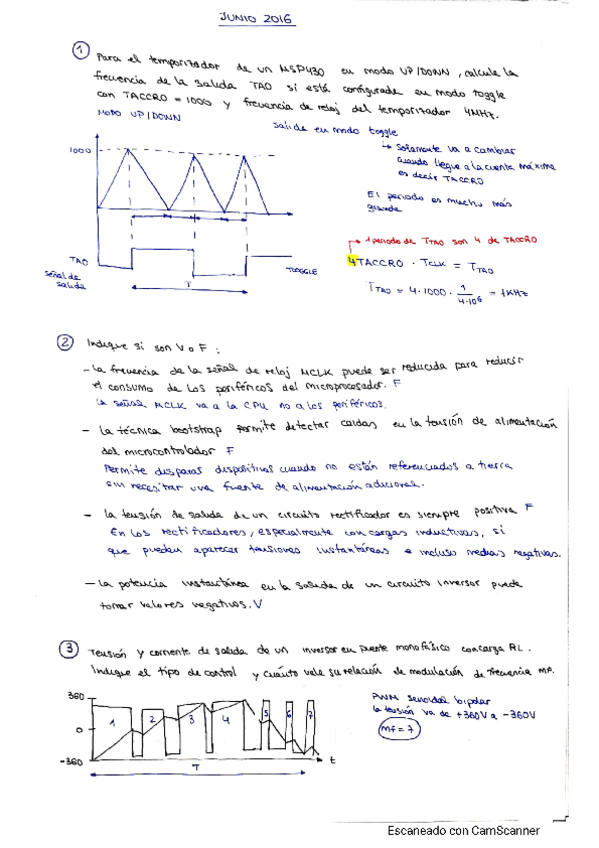 JUNIO 2016
1 Para el temporizador de un MSP430 en modo UP/DOWN, calcule la
frecuencia de la salida TA0 si está configurada en modo toggle
con TACCR0 = 1000 y frecuencia de reloj del temporizador 4MHz.
MODO UP/DOWN
salida en modo toggle
↳ Solamente va a cambiar
cuando llegue a la cuenta máxima
es decir TACCR0
1000
El periodo es mucho más
grande
1 periodo de TTA0 son 4 de TACCR0
TA0
señal de
salida
TOGGLE
T
4TACCR0 · TCLK = TTA0
TTA0 = 4·1000· 1/4·10⁶ = 1KHz
2 Indique si son V o F:
- La frecuencia de la señal de reloj MCLK puede ser reducida para reducir
el consumo de los periféricos del microprocesador. F
La señal MCLK va a la CPU no a los periféricos.
- La técnica bootstrap permite detectar caídas en la tensión de alimentación
del microcontrolador F
Permite disparar dispositivos cuando no están referenciados a tierra
sin necesitar una fuente de alimentación adicional.
- La tensión de salida de un circuito rectificador es siempre positiva F
En los rectificadores, especialmente con cargas inductivas, sí
que pueden aparecer tensiones instantáneas e incluso medias negativas.
- La potencia instantánea en la salida de un circuito inversor puede
tomar valores negativos. V
3 Tensión y corriente de salida de un inversor en puente monofásico con carga RL.
Indique el tipo de control y cuánto vale su relación de modulación de frecuencia mf.
360
0
-360
1 2 3 4 5 6 7
t
T
PWM senoidal bipolar
la tensión va de +360V a -360V
mf = 7
Escaneado con CamScanner